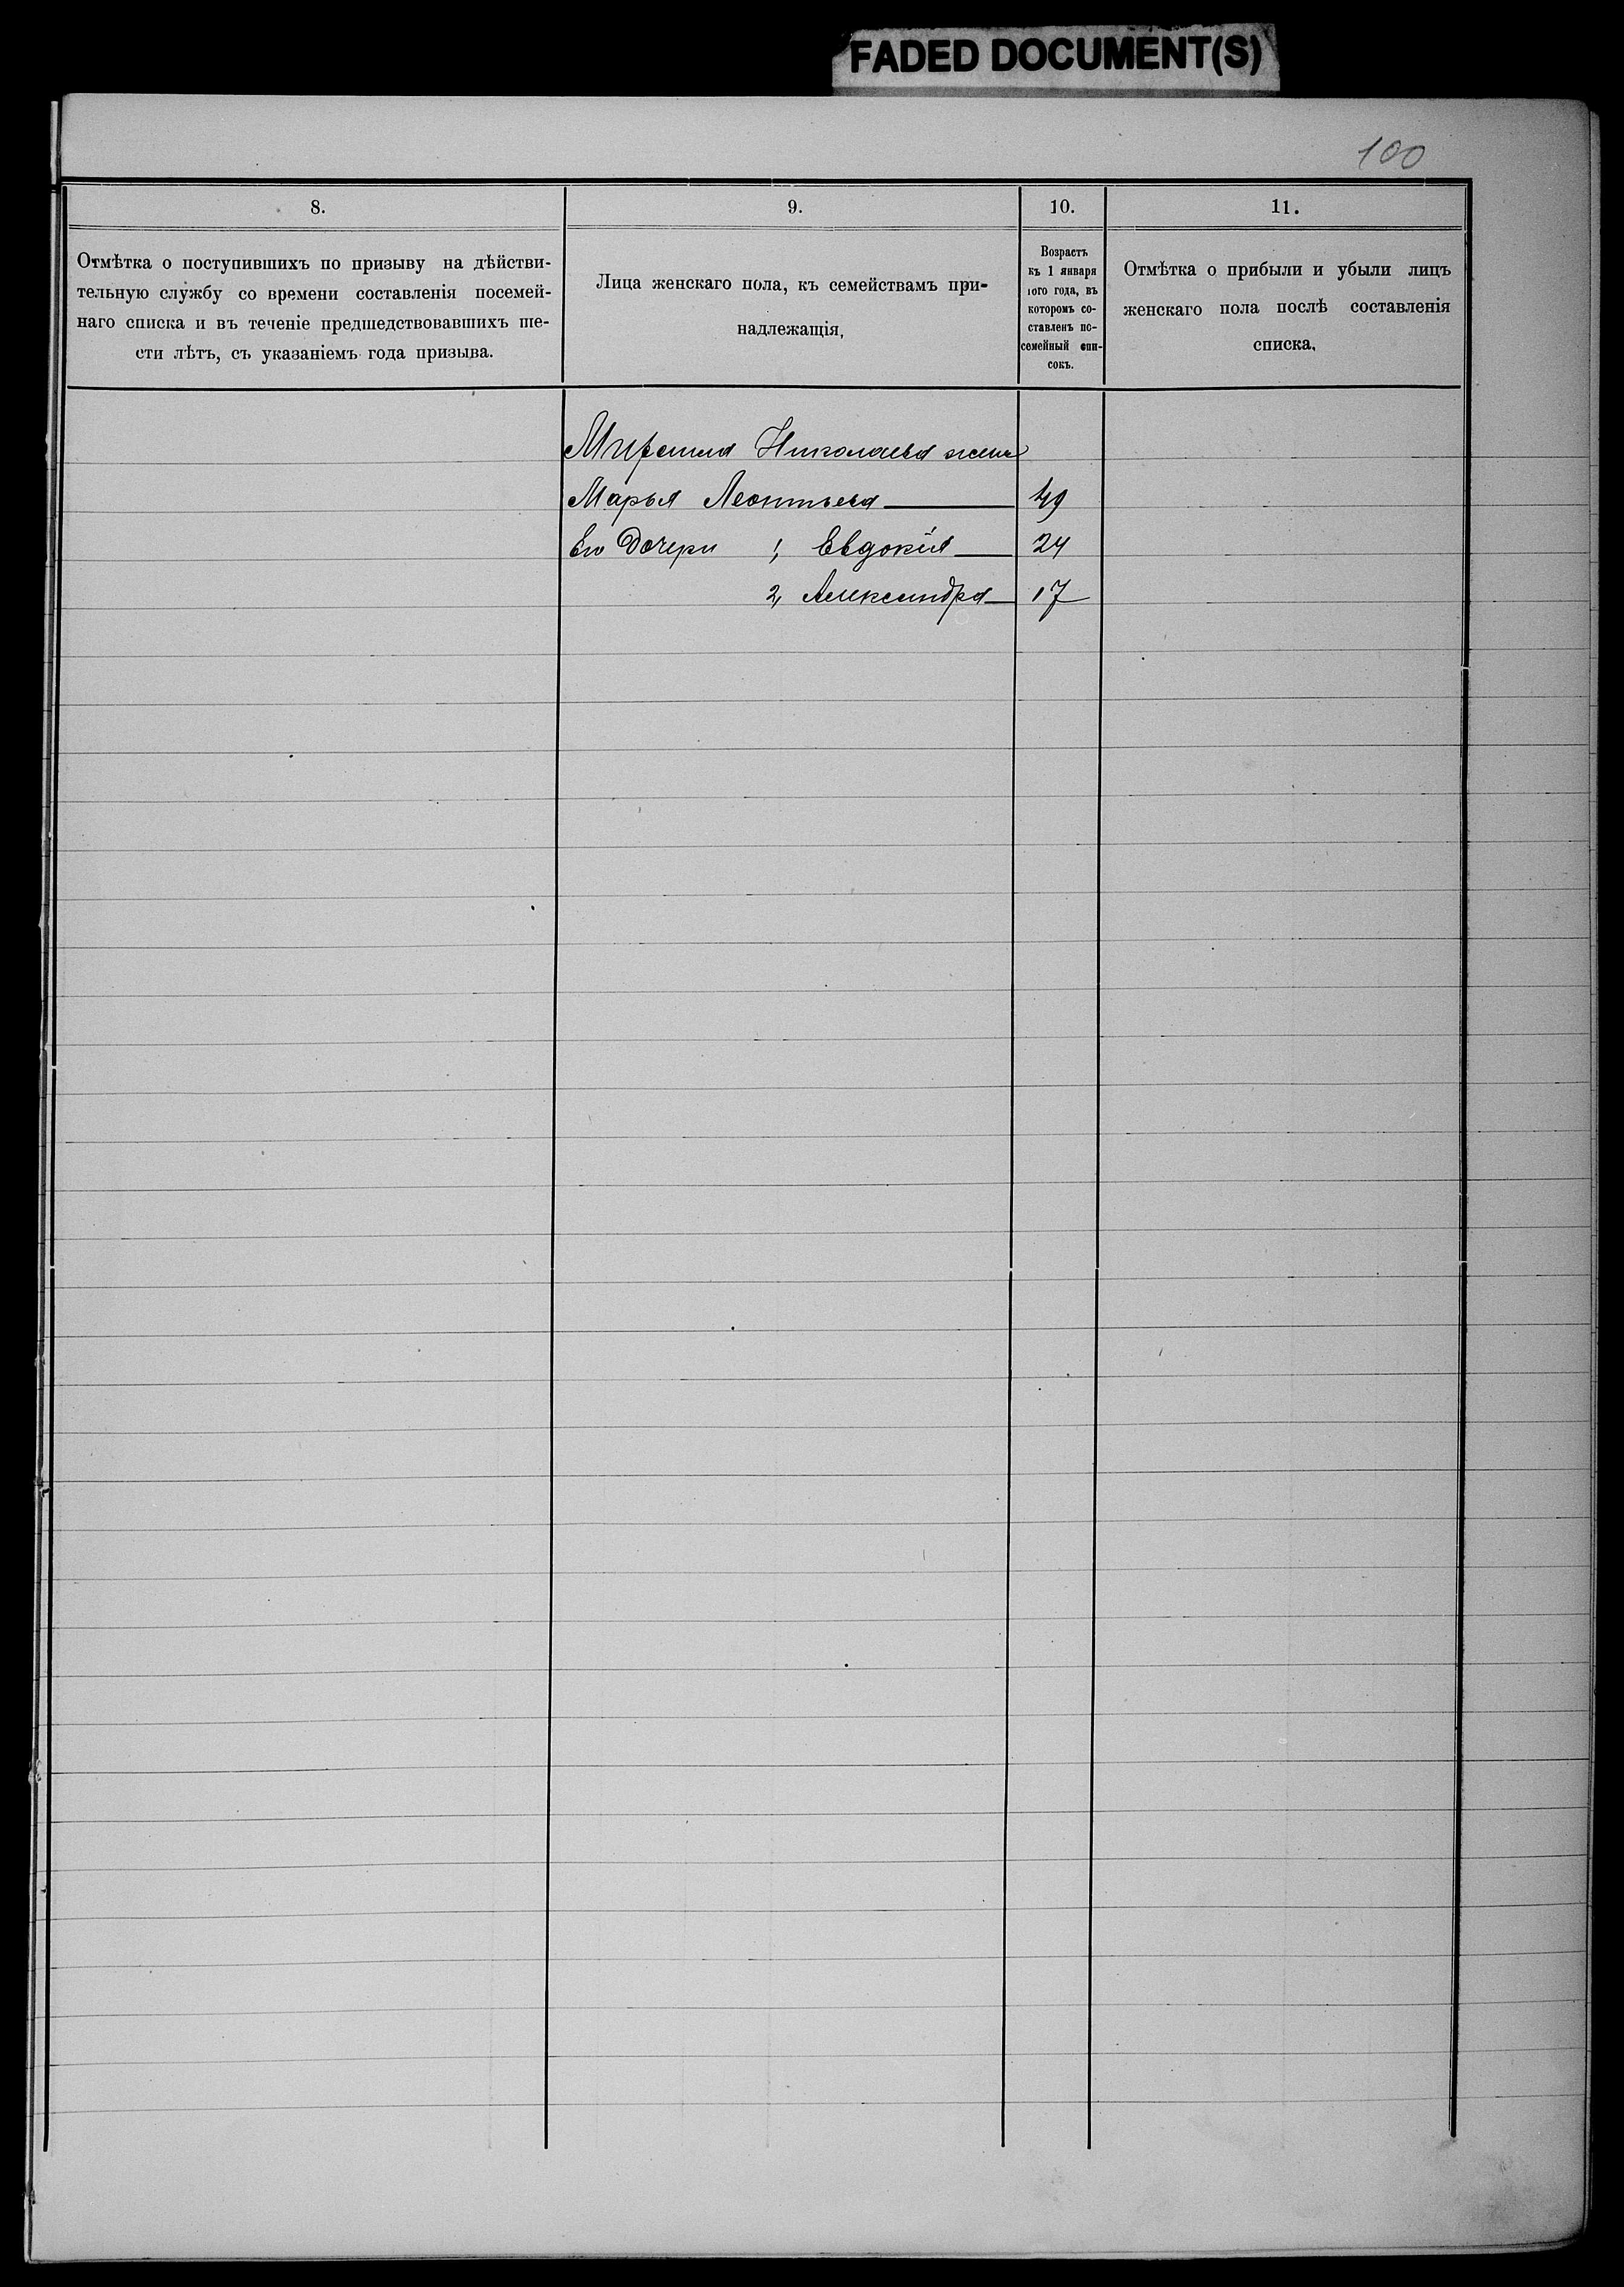 FADED DOCUMENT(S)
100
8.
9.
10.
11.
Отмѣтка о поступившихъ по призыву на дѣйстви-
тельную службу со времени составленія посемей-
наго списка и въ теченіе предшедствовавшихъ ше-
сти лѣтъ, съ указаніемъ года призыва.
Лица женскаго пола, къ семействамъ при-
надлежащія,
Возрастъ
къ 1 января
того года, въ
которомъ со-
ставленъ по-
семейный спи-
сокъ.
Отмѣтка о прибыли и убыли лицъ
женскаго пола послѣ составленія
списка,
Николаева жена
Марья Леонтьева 49
Его дочери 1, Евдокія 24
2, Александра 17